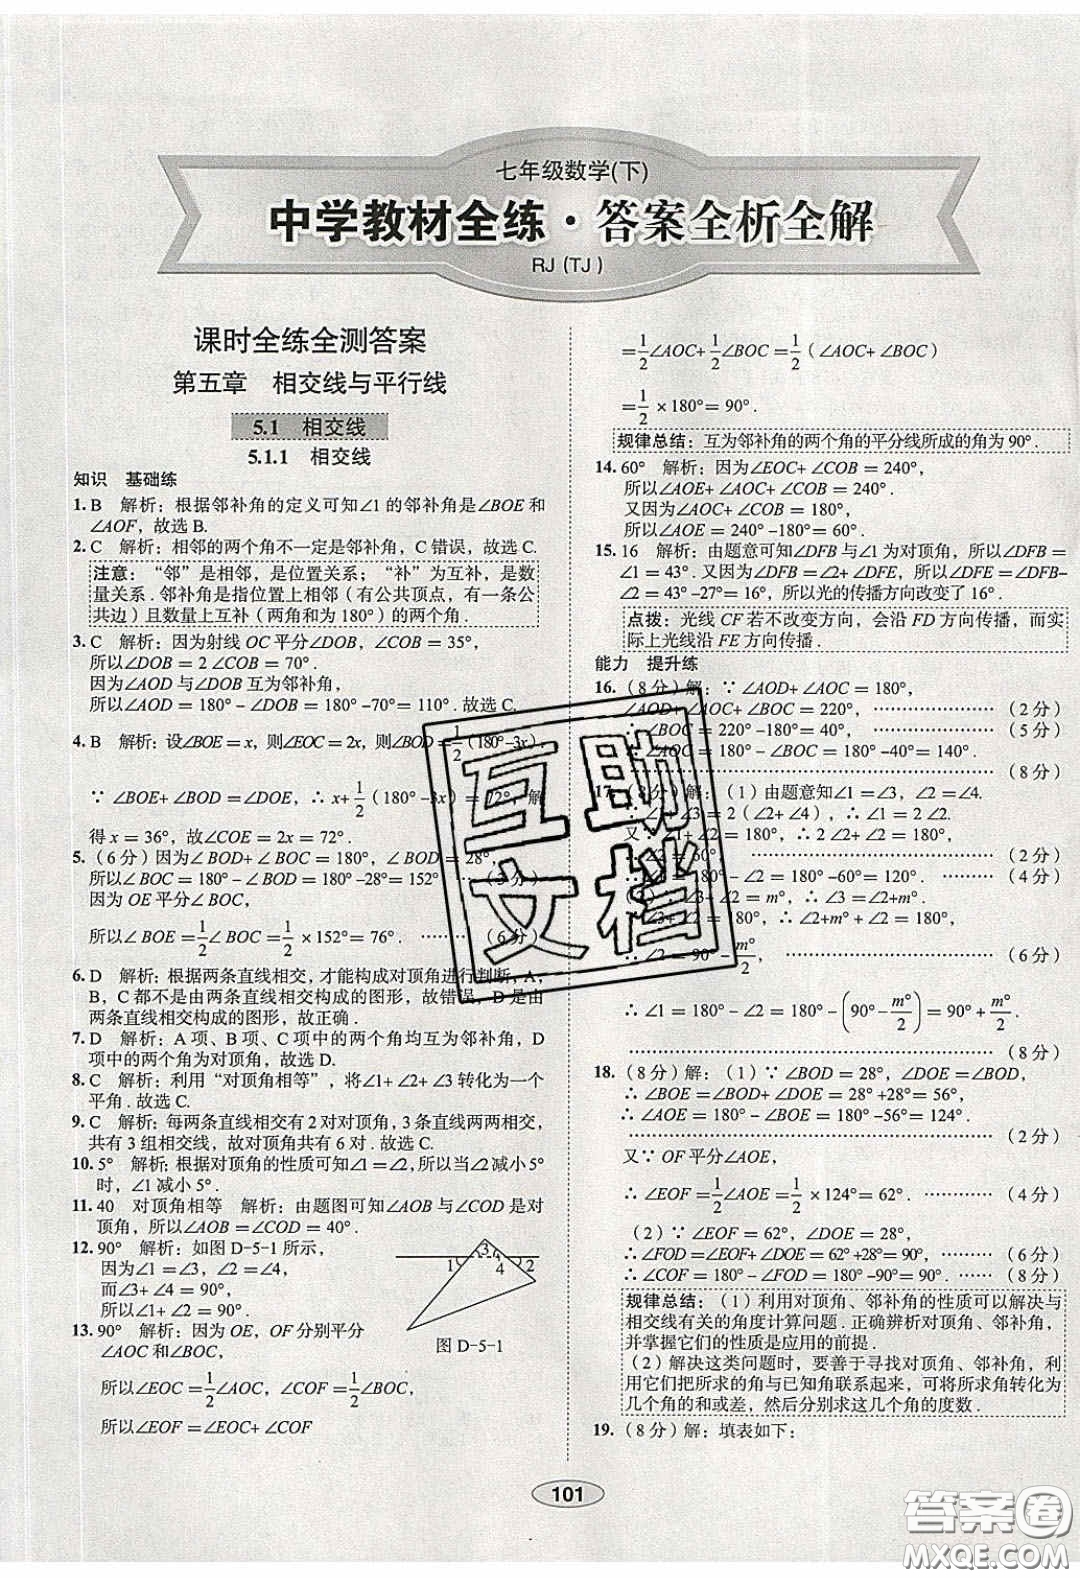 七年级数学(下)
中学教材全练·答案全析全解
RJ (TJ)
课时全练全测答案
第五章 相交线与平行线
5.1 相交线
5.1.1 相交线
知识 基础练
1. B 解析：根据邻补角的定义可知∠1 的邻补角是∠BOE 和
∠AOF，故选 B.
2. C 解析：相邻的两个角不一定是邻补角，C 错误，故选 C.
注意：“邻”是相邻，是位置关系；“补”为互补，是数
量关系 . 邻补角是指位置上相邻（有公共顶点，有一条公
共边）且数量上互补（两角和为 180°）的两个角 .
3. C 解析：因为射线 OC 平分∠DOB，∠COB = 35°，
所以∠DOB = 2 ∠COB = 70° .
因为∠AOD 与∠DOB 互为邻补角，
所以∠AOD = 180° – ∠DOB = 180° –70°= 110° . 故选 C.
4. B 解析：设∠BOE = x，则∠EOC = 2x，则∠BOD = 1/2 (180°–3x) .
∵ ∠BOE+ ∠BOD = ∠DOE，∴ x+1/2（180°–3x）= 72°，解
得 x = 36°，故∠COE = 2x = 72° .
5.（6 分）因为∠ BOD+ ∠ BOC = 180°，∠ BOD = 28°，
所以∠ BOC = 180° – ∠ BOD = 180° –28° = 152° . （3 分）
因为 OE 平分∠ BOC，
所以∠ BOE = 1/2 ∠ BOC = 1/2 × 152°= 76° . ……… （6 分）
6. D 解析：根据两条直线相交，才能构成对顶角进行判断，A，
B，C 都不是由两条直线相交构成的图形，故错误，D 是由
两条直线相交构成的图形，故正确 .
7. D 解析：A 项、B 项、C 项中的两个角均互为邻补角，D
项中的两个角为对顶角，故选 D.
8. C 解析：利用“对顶角相等”，将∠1+ ∠2+ ∠3 转化为一个
平角 . 故选 C.
9. C 解析：每两条直线相交有 2 对对顶角，3 条直线两两相交，
共有 3 组相交线，故对顶角共有 6 对 . 故选 C.
10. 5° 解析：根据对顶角的性质可知∠1 = ∠2，所以当∠2 减小 5°
时，∠1 减小 5°.
11. 40 对顶角相等 解析：由题图可知∠AOB 与∠COD 是对
顶角，所以∠AOB = ∠COD = 40° .
12. 90° 解析：如图 D-5-1 所示，
因为∠1 = ∠3，∠2= ∠4，
而∠3+ ∠4 = 90°，
所以∠1+ ∠2 = 90° .
1 3 4 2
图 D-5-1
13. 90° 解析：因为 OE，OF 分别平分
∠AOC 和∠BOC，
所以∠EOC =1/2∠AOC，∠COF =1/2∠BOC，
所以∠EOF = ∠EOC+ ∠COF
=1/2∠AOC+ 1/2∠BOC =1/2（∠AOC+ ∠BOC）
=1/2 × 180°= 90° .
规律总结：互为邻补角的两个角的平分线所成的角为 90° .
14. 60° 解析：因为∠EOC+ ∠COB = 240°，
所以∠AOE+ ∠AOC+ ∠COB = 240° .
又因为∠AOC+ ∠COB = 180°，
所以∠AOE = 240° –180°= 60° .
15. 16 解析：由题意可知∠DFB 与∠1 为对顶角，所以∠DFB =
∠1 = 43° . 又因为∠DFB = ∠2+ ∠DFE，所以∠DFE = ∠DFB–
∠2 = 43° –27°= 16°，所以光的传播方向改变了 16° .
点拨：光线 CF 若不改变方向，会沿 FD 方向传播，而实
际上光线沿 FE 方向传播 .
能力 提升练
16.（8 分）解：∵ ∠AOD+ ∠AOC = 180°，
∠AOD+ ∠AOC+ ∠BOC = 220°，…………………（2 分）
∴ ∠BOC = 220° –180°= 40°，…………………（5 分）
∴ ∠AOC = 180° – ∠BOC = 180° –40°= 140° .
…………………（8 分）
17.（8 分）解：（1）由题意知∠1 = ∠3，∠2 = ∠4.
∵ ∠1+ ∠3 = 2（∠2+ ∠4），∴ ∠1 = 2 ∠2.
又∵ ∠1+ ∠2 = 180°，∴ 2 ∠2+ ∠2 = 180°，
∴ ∠2 = 60°， …………………（2 分）
∴ ∠1 = 180° – ∠2 = 180° –60°= 120° . …………（4 分）
（2）∵ ∠3– ∠2 = m°，∴ ∠3 = ∠2+m°，
∵ ∠3+ ∠2 = 180°，∴ ∠2+m° + ∠2 = 180°，
∴ ∠2 = 90° –m°/2，…………………（6 分）
∴ ∠1 = 180° – ∠2 = 180° –(90° –m°/2) = 90° +m°/2 .
…………………（8 分）
18.（8 分）解：（1）∵ ∠BOD = 28°，∠DOE = ∠BOD，
∴ ∠BOE = ∠BOD+ ∠DOE = 28° +28°= 56°，
∴ ∠AOE = 180° – ∠BOE = 180° –56°= 124° .
…………………（2 分）
又∵ OF 平分∠AOE，
∴ ∠EOF =1/2∠AOE =1/2 × 124°= 62° . …………（4 分）
（2）∵ ∠EOF = 62°，∠DOE = 28°，
∴ ∠FOD = ∠EOF+ ∠DOE = 62° +28°= 90°，………（6 分）
∴ ∠COF = 180° – ∠FOD = 180° –90°= 90° . ……（8 分）
规律总结：（1）利用对顶角、邻补角的性质可以解决与
相交线有关的角度计算问题 . 正确辨析对顶角、邻补角，
并掌握它们的性质是应用的前提 .
（2）解决这类问题时，要善于寻找对顶角、邻补角，利
用它们把所求的角与已知角联系起来，可将所求角转化为
几个角的和或差，然后分别求这几个角的度数 .
19.（8 分）解：填表如下：
101
互助
文档
答案圈
MXQE.COM